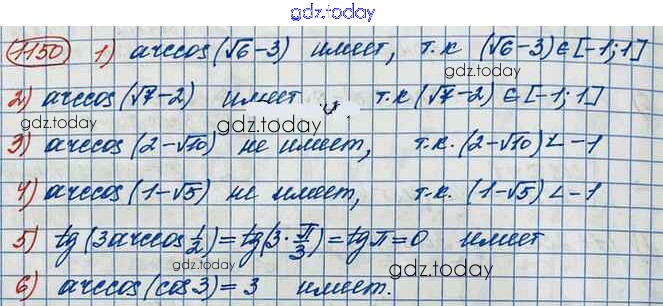 gdz.today
1150 1) arccos(√6-3) имеет, т.к (√6-3)∈[-1;1]
gdz.today
2) arccos(√7-2) имеет т.к (√7-2)∈[-1;1]
gdz.today
3) arccos(2-√10) не имеет, т.к. (2-√10)<-1
4) arccos(1-√5) не имеет, т.к. (1-√5)<-1
gdz.today
5) tg(3arccos 1/2)=tg(3·π/3)=tgπ=0 имеет
gdz.today
gdz.today
6) arccos(cos3)=3 имеет.